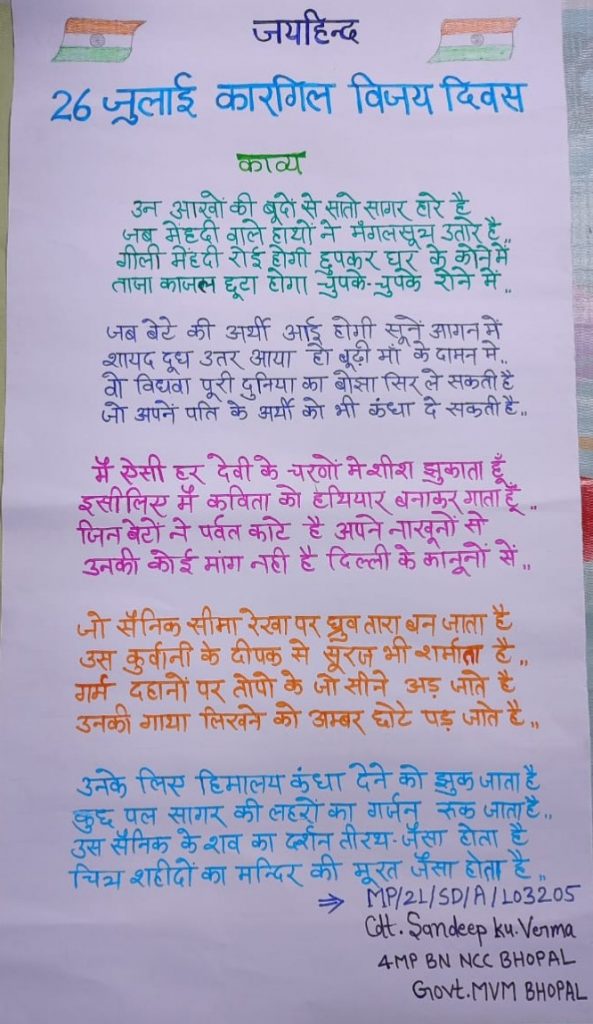 जयहिन्द
26 जुलाई कारगिल विजय दिवस
काव्य
उन आखों की बूदों से सातो सागर हारे है
जब मेहदी वाले हाथों ने मंगलसूत्र उतारे है..
गीली मेंहदी रोई होगी छुपकर घर के कोने में
ताजा काजल छूटा होगा चुपके-चुपके रोने में..
जब बेटे की अर्थी आई होगी सूनें आगन में
शायद दूध उतर आया हो बूढ़ी माँ के दामन मे..
वो विधवा पूरी दुनिया का बोझा सिर ले सकती है
जो अपनें पति के अर्थी को भी कंधा दे सकती है..
मैं ऐसी हर देवी के चरणों मे शीश झुकाता हूँ
इसीलिए मैं कविता को हथियार बनाकर गाता हूँ..
जिन बेटों ने पर्वत काटे है अपने नाखूनों से
उनकी कोई मांग नही है दिल्ली के कानूनों सें..
जो सैनिक सीमा रेखा पर ध्रुव तारा बन जाता है
उस कुर्वानी के दीपक से सूरज भी शर्माता है..
गर्म दहानों पर तोपो के जो सीने अड़ जाते है
उनकी गाथा लिखने को अम्बर छोटे पड़ जाते है..
उनके लिए हिमालय कंधा देने को झुक जाता है
कुछ पल सागर की लहरों का गर्जन रुक जाता है..
उस सैनिक के शव का दर्शन तीरथ-जैसा होता है
चित्र शहीदों का मन्दिर की मूरत जैसा होता है..
⇒ MP/21/SD/A/103205
Cdt. Sandeep ku. Verma
4MP BN NCC BHOPAL
Govt. MVM BHOPAL